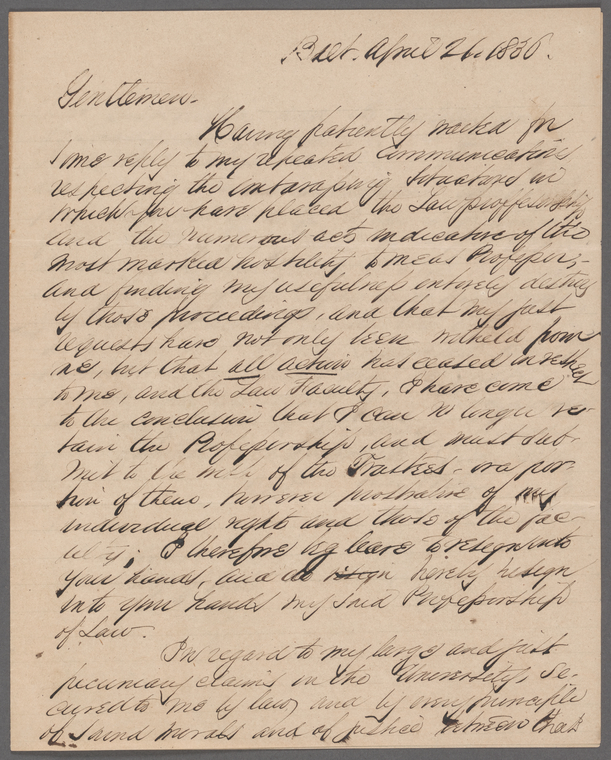 Balt. April 26. 1836.
Gentlemen.
Having patiently waited for
some reply to my repeated Communications
respecting the embarassing situations in
which you have placed the Law proffessorship
and the numerous acts indicative of the
most marked hostility to me as Professor;—
and finding my usefulness entirely destroyed
by those proceedings, and that my just
requests have not only been witheld from
me, but that all action has ceased in respect
to me, and the Law Faculty, I have come
to the conclusion that I can no longer re-
tain the Professorship, and must sub-
mit to the will of the Trustees—or a por-
tion of them, however prostrative of my
individual right and those of the fac-
ulty; I therefore beg leave to resign into
your hands, and do resign hereby resign
into your hands my said Professorship
of Law.
In regard to my large and just
pecuniary claims in the University, se-
cured to me by law, and by every principle
of sound morals and of justice between that